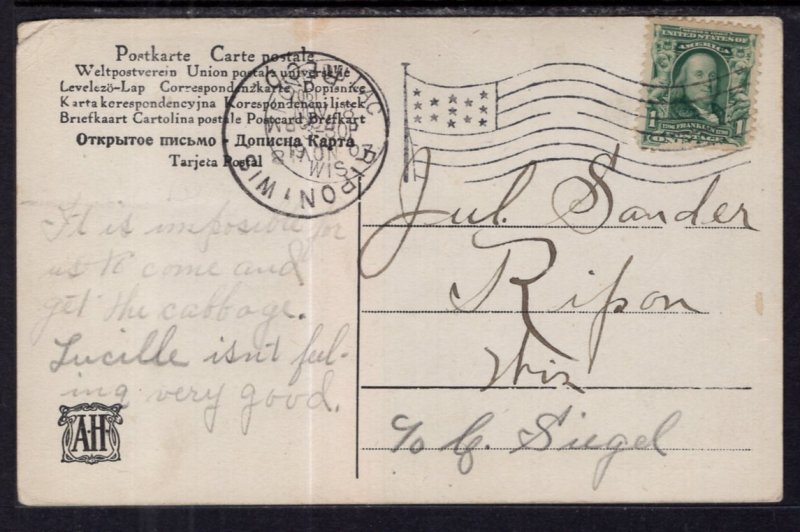 Postkarte Carte postale
Weltpostverein Union postale universelle
Levelező-Lap Correspondenzkarte Dopisnice
Karta korespondencyjna Korespondeneni listek
Briefkaart Cartolina postale Postcard Brefkort
Открытое письмо - Дописна Карта
Tarjeta Postal
LAC
REC'D
RIPON, WIS.
NOV
WIS
UNITED STATES OF
AMERICA
1 FRANKLIN 1
It is imposive for
us to come and
get the cabbage.
Lucille isn't feel-
ing very good.
A·H·
Jul. Sander
Ripon
Wis
c/o G. Siegel